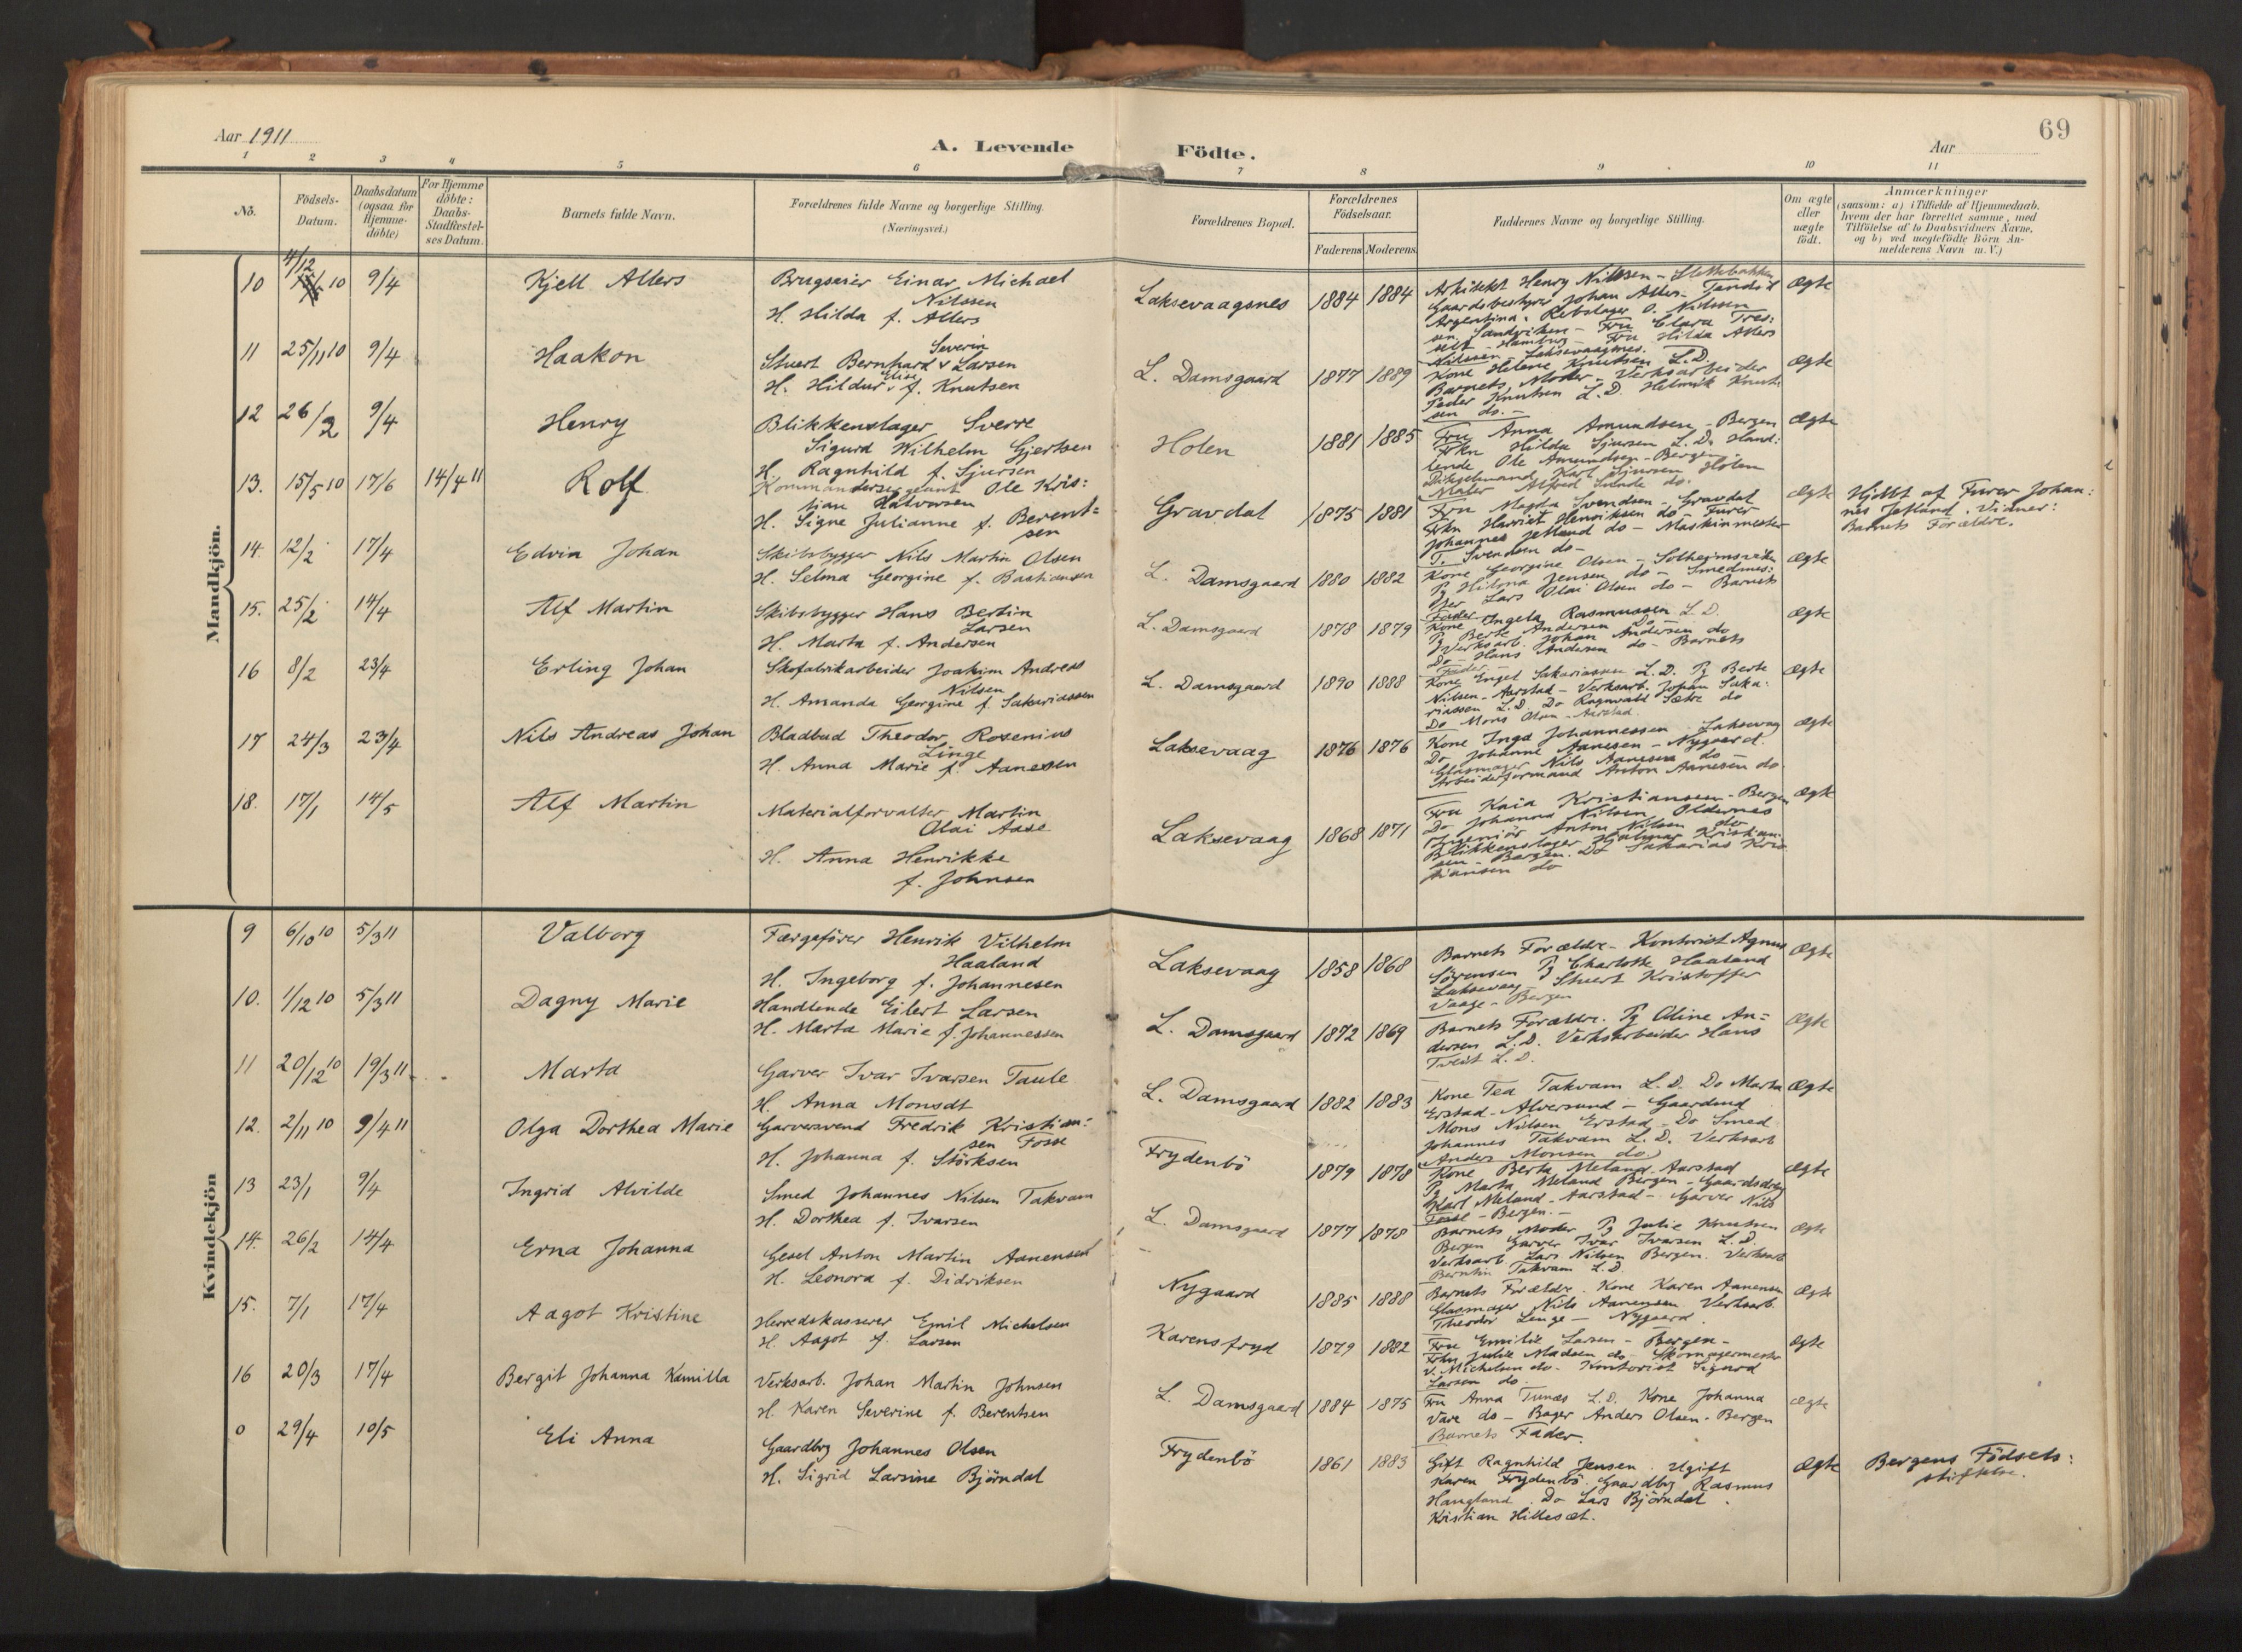 Aar 1911
A. Levende Födte.
69
Aar
1 2 3 4 5 6 7 8 9 10 11
No.
Födsels-Datum.
Daabsdatum (ogsaa for Hjemme-döbte)
For Hjemme döbte: Daabs-Stadfæstel-ses Datum.
Barnets fulde Navn.
Forældrenes fulde Navne og borgerlige Stilling.
(Næringsvei.)
Forældrenes Bopæl.
Forældrenes Födselsaar.
Faderens Moderens
Faddernes Navne og borgerlige Stilling.
Om ægte eller uægte födt.
Anmærkninger
(saasom: a) i Tilfælde af Hjemmedaab.
hvem der har forrettet samme, med
Tilföielse af to Daabsvidners Navne.
og b) ved uægtefödte Börn An-
melderens Navn m. V.)
Mandkjön.
10 4/12 10 9/4 Kjell Allers
Brugseier Einar Michael
Nilssen
H. Hilda f. Allers
Laksevaagsnes 1884 1884
Arkitekt Henry Nilssen - Slettebakken
Gaardsbestyrer Johan Allers - Tandil
Argentina. Rebslager O. Nilssen
Sandviken - Fru Clara
Hamburg - Fru Hilda Allers
Nilssen - Laksevaagsnes.
Ægte
11 25/11 10 9/4 Haakon
Severin
Stuert Bernhard v Larsen
Elise
H. Hildur v f. Knutsen
L. Damsgaard 1877 1889
Kone Helene Knutsen L.D.
Barnets Moder - Verksarbeider
Peder Knutsen L.D. Helmik Knut-
sen do. -
Ægte
12 26/2 9/4 Henry
Blikkenslager Sverre
Sigurd Wilhelm Gjertsen
H. Ragnhild f. Sjursen
Holen 1881 1885
Fru Anna Amundsen - Bergen
Frkn Hilda Sjursen L.D. Hand:
lende Ole Amundsen - Bergen -
Karl Sjursen Holen
Maler Alfred Lunde do.
Ægte
13. 15/5 10 17/6 14/4 11 Rolf
Kommandersergeant Ole Kris:
tian Halvorsen
H. Signe Julianne f. Berent=
sen
Gravdal 1875 1881
Fru Magda Svendsen - Gravdal
Frkn Harriet Henriksen do - Furer
Johannes Jetland do - Maskinmester
T. Svendsen do -
Ægte
Hjdbt af Furer Johan:
nes Jetland. Vidner:
Barnets Forældre.
14. 12/2 17/4 Edvin Johan
Skibsbygger Nils Martin Olsen
H. Selma Georgine f. Bastiansen
L. Damsgaard 1880 1882
Kone Georgine Olsen - Solheimsviken
Pg Hilma Jensen do - Smedmes:
ter Lars Olai Olsen do - Barnets
Fader
Ægte
15. 25/2 14/4 Alf Martin
Skibsbygger Hans Bertin
Larsen
H. Marta f. Andersen
L. Damsgaard 1878 1879
Kone Ingela Rasmussen L.D.
Pg Berte Andersen Do
Verksarb. Johan Andersen do
Do - Hans Andersen do - Barnets
Fader
Ægte
16 8/2 23/4 Erling Johan
Skofabrikarbeider Joakim Andreas
Nilsen
H. Amanda Georgine f. Sakariassen
L. Damsgaard 1890 1888
Kone Engel Sakariassen L.D. Pg Berte
Nilsen - Aarstad - Verksarb. Johan Saka:
riassen L.D. Do Ragnvald Sætre do
Do Mons Olsen - Aarstad.
Ægte
17 24/3 23/4 Nils Andreas Johan
Bladbud Theodor Rosenius
Linge
H. Anna Marie f. Aanesen
Laksevaag 1876 1876
Kone Inga Johannessen Laksevaag
Do Johanne Aanesen - Nygaard.
Glasmager Nils Aanesen do
Arbeiderformand Anton Aanesen do
Ægte
18. 17/1 14/5 Alf Martin
Materialforvalter Martin
Olai Aase
H. Anna Henrikke
f. Johnsen
Laksevaag 1868 1871
Fru Kaia Kristiansen - Bergen
Do Johanna Nilsen Oldernes
Ingeniör Anton Nilsen do
Blikkenslager Hjalmar Kristian-
sen - Bergen. Do Sakarias Kris
tiansen do
Ægte
Kvindekjön
9 6/10 10 5/3 11 Valborg
Færgeförer Henrik Vilhelm
Haaland
H. Ingeborg f. Johannesen
Laksevaag 1858 1868
Barnets Forældre - Kontorist Agnus
Sörensen Pg Charlotte Haaland
Laksevaag - Stuert Kristoffer
Vaage - Bergen
Ægte
10. 1/12 10 5/3 11 Dagny Marie
Handlende Eilert Larsen
H. Marta Marie f. Johannessen
L. Damsgaard 1872 1869
Barnets Forældre. Pg Oline An=
dersen L.D. Verksarbeider Hans
Tveit L.D.
Ægte
11 20/12 10 19/3 11 Marta
Garver Ivar Ivarsen Taule
H. Anna Monsdt
L. Damsgaard 1882 1883
Kone Tea Takvam L.D. Do Marta
Erstad - Alversund - Gaardmd
Mons Nilsen Erstad - Do Smed
Johannes Takvam L.D. Verksarb
Anders Monsen do
Ægte
12. 2/11 10 9/4 11 Olga Dorthea Marie
Garversvend Fredrik Kristian:
sen Fosse
H. Johanna f. Störksen
Frydenbö 1879 1878
Kone Berta Meland Aarstad
Pg Marta Meland Bergen - Gaardsdreng
Karl Meland - Aarstad - Garver Nils
Fosse - Bergen. -
Ægte
13 23/1 9/4 Ingrid Alvilde
Smed Johannes Nilsen Takvam
H. Dorthea f. Ivarsen
L. Damsgaard 1877 1878
Barnets Moder Pg Julie Knutsen
Bergen Garver Ivar Ivarsen L.D.
Verksarb Lars Nilsen Bergen. Verksarb
Berntin Takvam L.D.
Ægte
14. 26/2 14/4 Erna Johanna
Gesel Anton Martin Aanensen
H. Leonora f. Didriksen
Nygaard 1885 1888
Barnets Forældre. Kone Karen Aanensen
Glasmager Nils Aanensen Verksarb.
Theodor Linge - Nygaard.
Ægte
15. 7/1 17/4 Aagot Kristine
Herredskasserer Emil Michelsen
H. Aagot f. Larsen
Karensfryd 1879 1882
Fru Emilie Larsen - Bergen -
Frkn Julie Madsen do - Skomagermester
V. Michelsen do - Kontorist Sigurd
Larsen do.
Ægte
16 20/3 17/4 Bergit Johanna Kamilla
Verksarb. Johan Martin Johnsen
H. Karen Severine f. Berentsen
L. Damsgaard 1884 1875
Fru Anna Tunæs L.D. Kone Johanna
Vare do - Bager Anders Olsen - Bergen
Barnets Fader.
Ægte
0 29/4 10/5 Eli Anna
Gaardbrg Johannes Olsen
H. Sigrid Larsine Björndal
Frydenbö 1861 1883
Gift Ragnhild Jensen. Ugift
Karen Frydenbö. Gaardbrg Rasmus
Haugland. Do Lars Björndal.
Kristian Hillesæt.
Ægte
Bergens Födsels:
stiftelse.